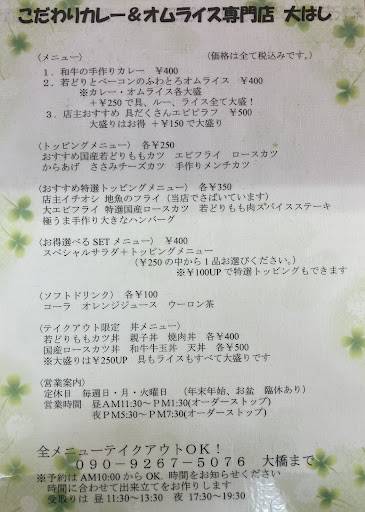 こだわりカレー＆オムライス専門店 大はし
〈メニュー〉 （価格は全て税込みです。）
１．和牛の手作りカレー ¥400
２．若どりとベーコンのふわとろオムライス ¥400
※カレー・オムライス各大盛
＋¥250で具、ルー、ライス全て大盛！
３．店主おすすめ 具だくさんエビピラフ ¥500
大盛りはお得 ＋¥150で大盛り
〈トッピングメニュー〉 各¥250
おすすめ国産若どりももカツ エビフライ ロースカツ
からあげ ささみチーズカツ 手作りメンチカツ
〈おすすめ特選トッピングメニュー〉 各¥350
店主イチオシ 地魚のフライ（当店でさばいています）
大エビフライ 特選国産ロースカツ 若どりもも肉ズパイスステーキ
極うま手作り大きなハンバーグ
〈お得選べるSETメニュー〉 ¥400
スペシャルサラダ＋トッピングメニュー
（¥250の中から１品お選びください。）
※¥100UPで特選トッピングもできます
〈ソフトドリンク〉 各¥100
コーラ オレンジジュース ウーロン茶
〈テイクアウト限定 丼メニュー〉
若どりももカツ丼 親子丼 焼肉丼 各¥400
国産ロースカツ丼 和牛牛玉丼 天丼 各¥500
※大盛りは¥250UP 具もライスもすべて大盛りです
〈営業案内〉
定休日 毎週日・月・火曜日 （年末年始、お盆 臨休あり）
営業時間 昼AM11:30～PM1:30(オーダーストップ)
夜PM5:30～PM7:30(オーダーストップ)
全メニューテイクアウトOK！
０９０-９２６７-５０７６ 大橋まで
※予約はAM10:00からOK. 時間をお知らせください
時間に合わせて出来立てをお作りします
受取りは 昼11:30～13:30 夜 17:30～19:30